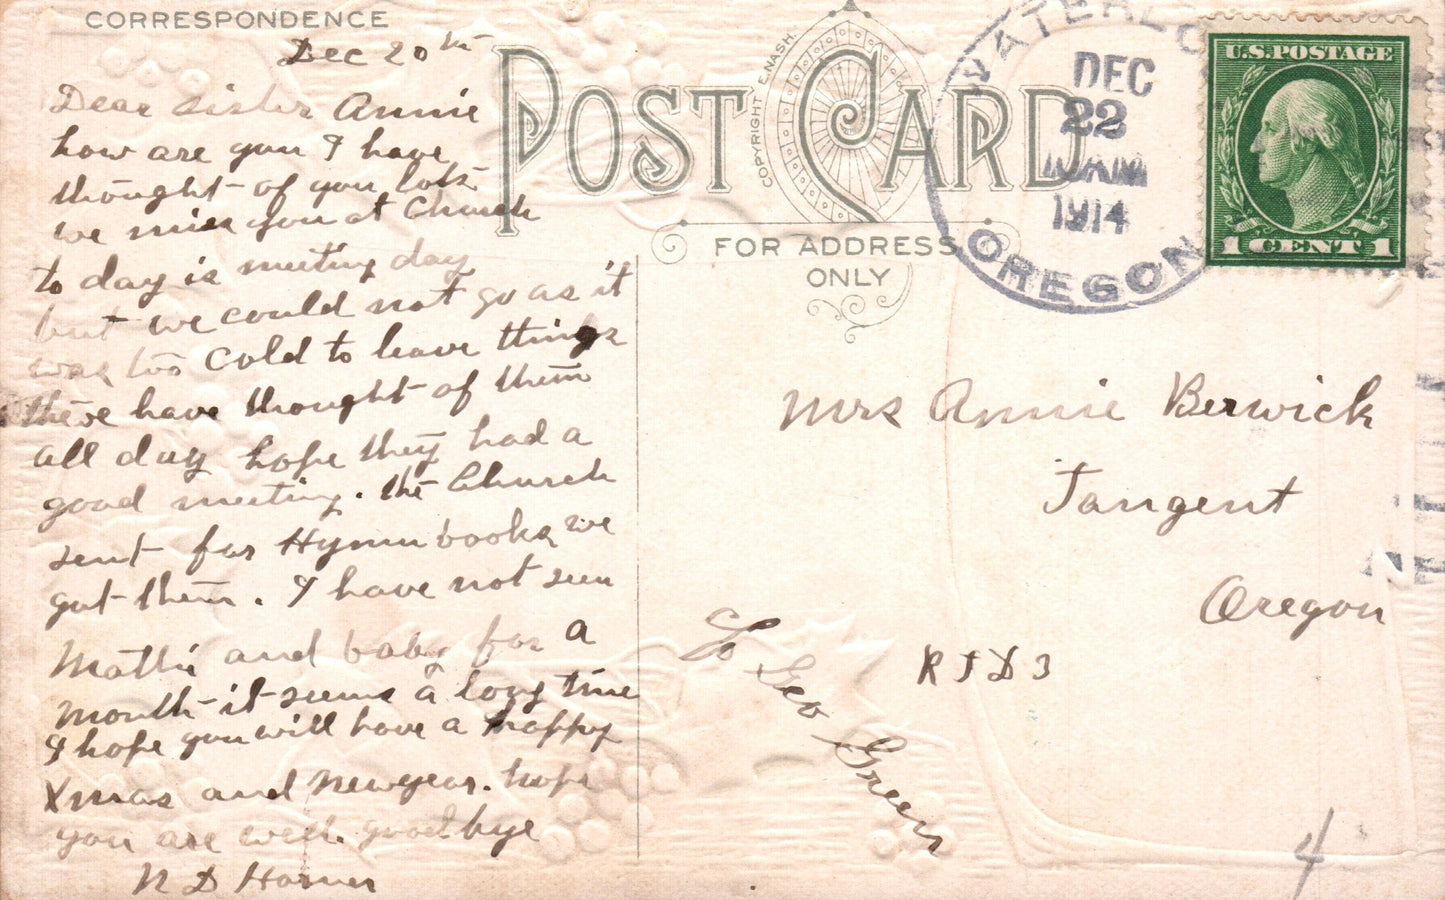 CORRESPONDENCE
Dec 20th
Dear Sister Annie
how are you I have
thought of you lots
we miss you at Church
to day is meeting day
but we could not go as it
was too cold to leave things
theve have thought of them
all day hope they had a
good meeting. the Church
sent for Hymn books we
got them. I have not seen
Mattie and baby for a
month it seems a long time
I hope you will have a happy
Xmas and Newyear. hope
you are well. goodbye
N D Horner
POST CARD
COPYRIGHT E. NASH.
FOR ADDRESS
ONLY
WATERLOO
DEC
22
AM
1914
OREGON
U.S. POSTAGE
1 CENT 1
Mrs Annie Berwick
Tangent
Oregon
RFD 3
℅ Geo Green
4